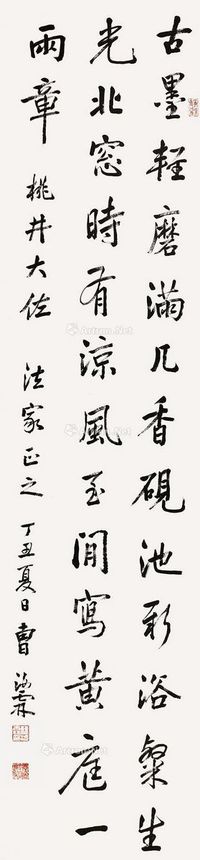 古墨輕磨滿几香硯池新浴粲生
光北窓時有涼風至閒寫黃庭一
兩章 桃井大佐 法家正之 丁丑夏日曹汝霖